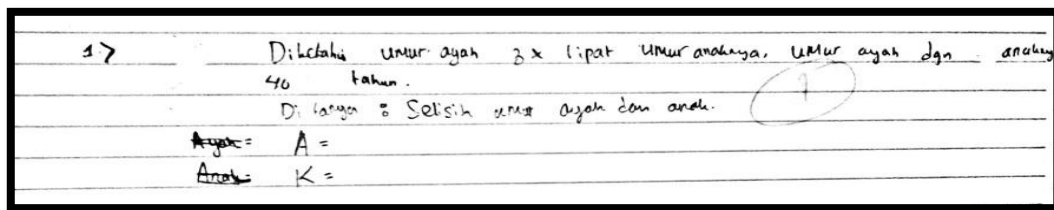 1> Diketahui umur ayah 3x lipat umur anaknya. umur ayah dgn anaknya
40 tahun.
Di tanya : Selisih umur ayah dan anak.
Ayah = A =
Anak = K =